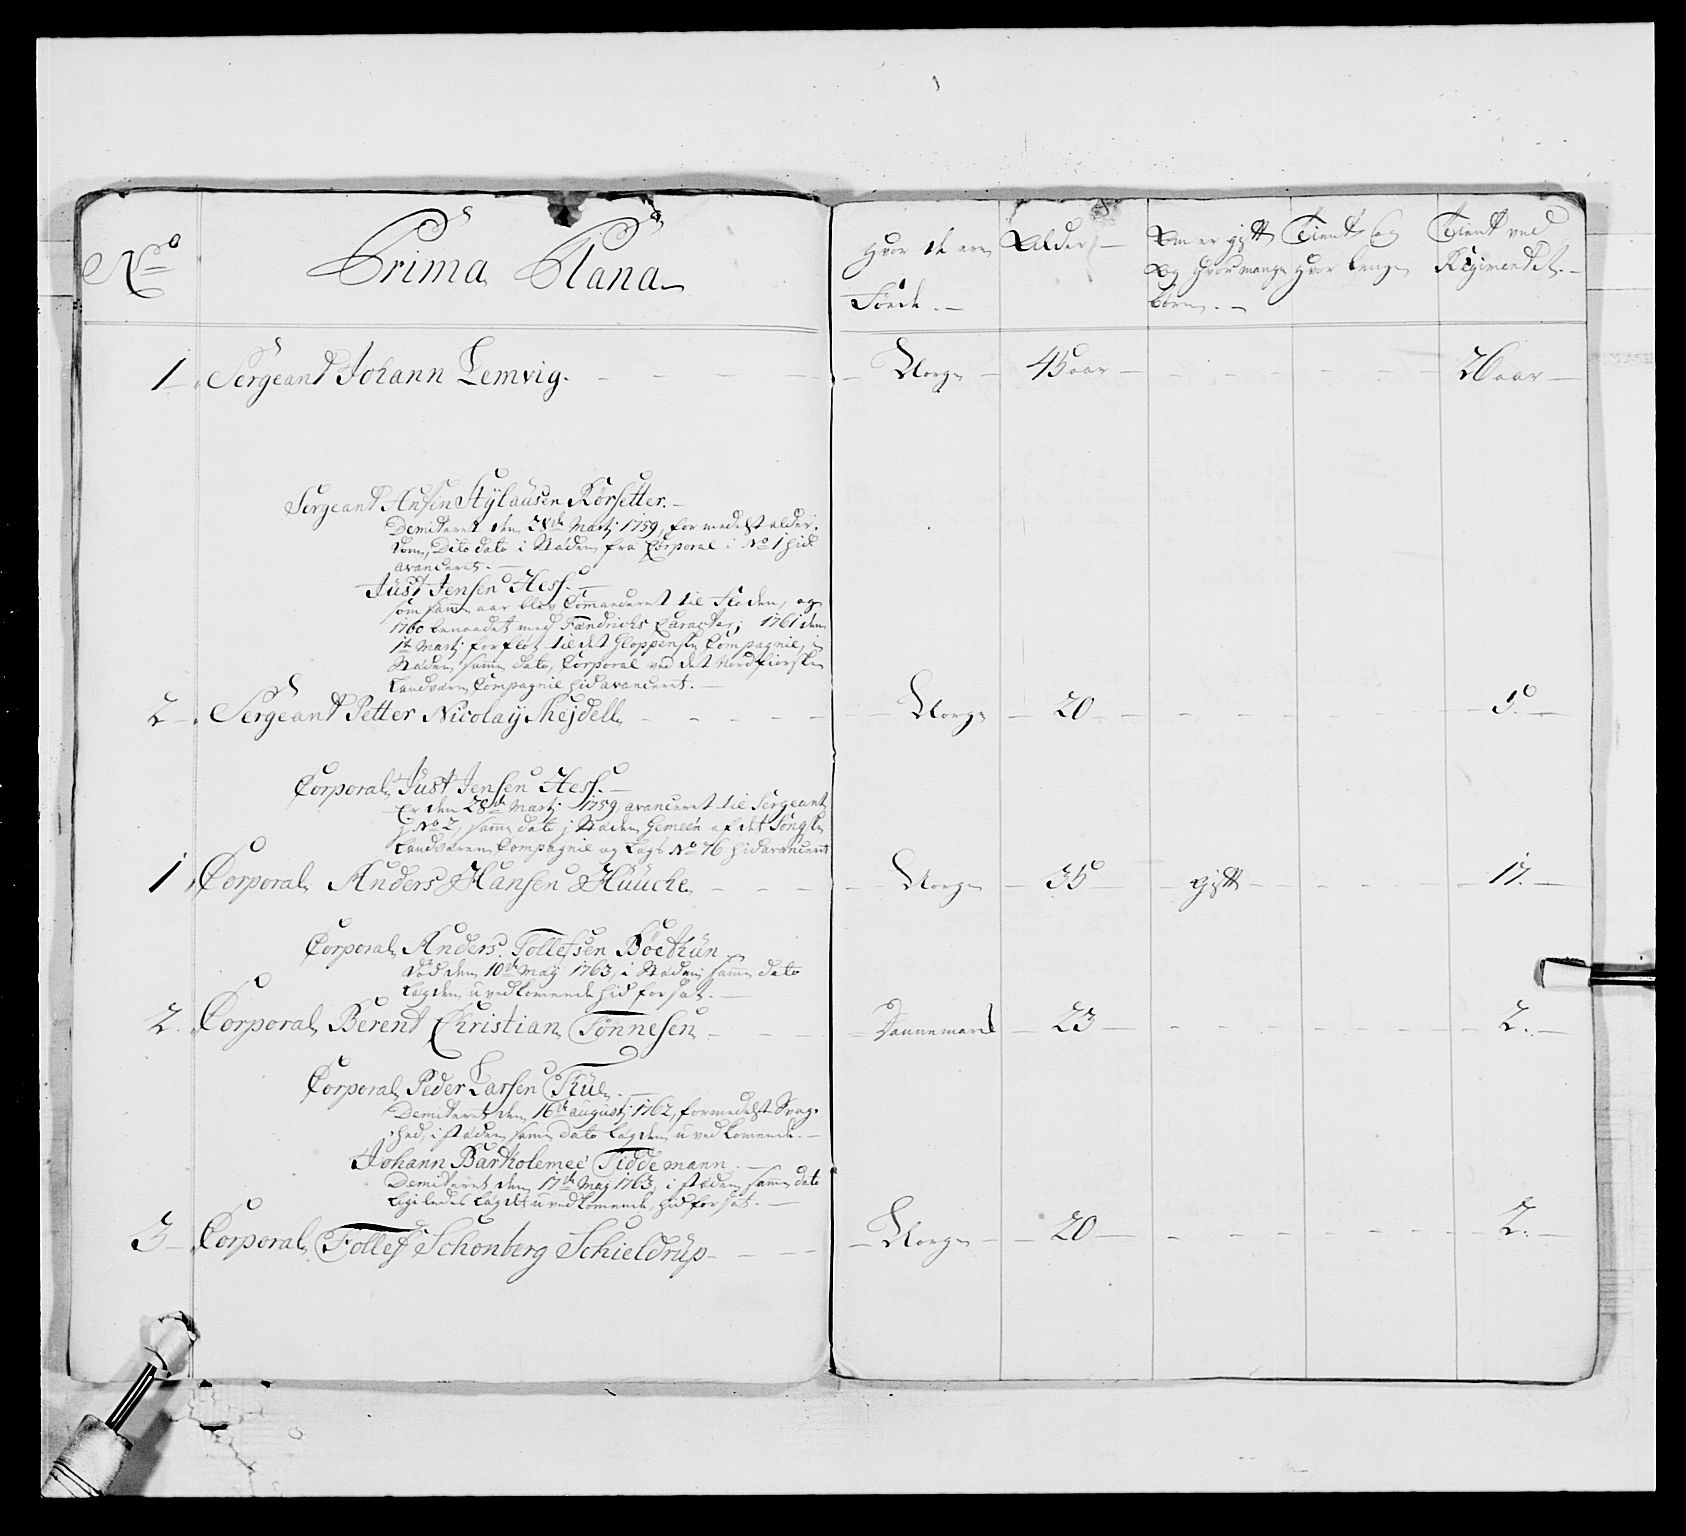 No Prima Plana
Hvor de ere Alder Om er gift Tient og Tient ved
og hvor mange hvor lenge Regimendtet.
Føede. børn.
1 Sergeant Johann Lemvig. Norge 45 aar 26 aar
Sergeant Ansin Stylausen Kørsetter.
Demiteret den 28de Martj 1759, formedelst alder-
dom, Dito dato i Støden fra Corporal i No 1 hid
avanceret.
Just Jensen Hess.
som samme aar blev Comanderet til Floden, og
1760 benaadet med Fændrichs Caracter; 1761 den
1te Martj forfløt til det Gloppenske Compagnie, i
Støden samme dato, Corporal ved det Nordfiorske
Landværn Compagnie hid avanceret.
2 Sergeant Petter Nicolaij Shejdell Norge 20 5.
Corporal Just Jensen Hess.
Er den 28de Martj 1759, avanceret til Sergeant
No 2, samme dato j Støden Gemeen af det
Landværn Compagnie og Lags No 76 hid avanceret
1 Corporal Anders Hansen Huuche Norge 35 gift 17.
Corporal Anders Tollefsen Böethün
Død den 10de Maj 1763, i Støden samme dato
Lægden uvedkomende hid forsat.
2. Corporal Berent Christian Tønnesen Dannemarck 23 2.
Corporal Peder Larsen Thue
Demiteret den 16de augustj 1762, formedelst Svag-
hed, i støden samme dato Lægden uvedkomende.
Johann Bartholemee Tiddemann
Demiteret den 17de Maj 1763, i støden samme dato
ligeledes Lægdet uvedkomende, hid forsat.
3 Corporal Tollef Schonberg Schieldrup Norge 20 2.